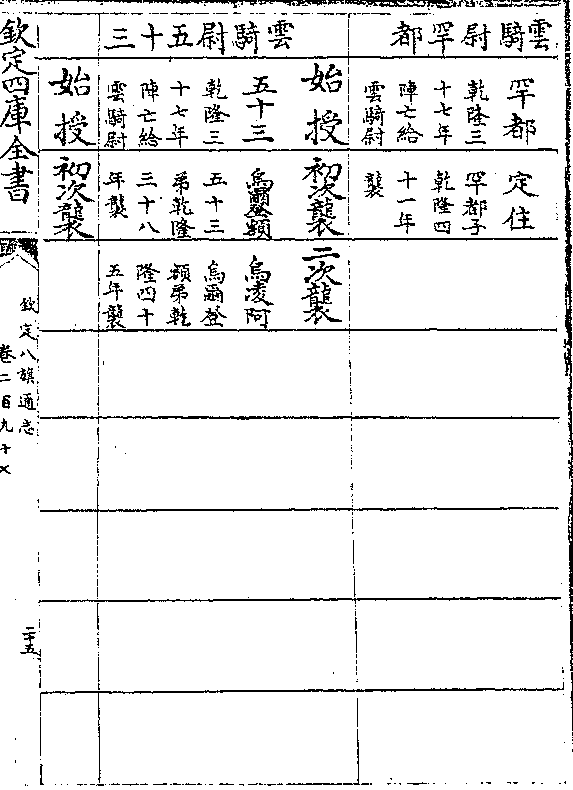 雲騎尉罕都
罕都
乾隆三
十七年
陣亡給
雲騎尉
定住
罕都子
乾隆四
十一年
襲
雲騎尉五十三
始授
五十三
乾隆三
十七年
陣亡給
雲騎尉
初次襲
烏爾登額
五十三
弟乾隆
三十八
年襲
二次襲
烏凌阿
烏爾登
額弟乾
隆四十
五年襲
始授
初次襲
欽定四庫全書
欽定八旗通志
卷二百九十
二十五